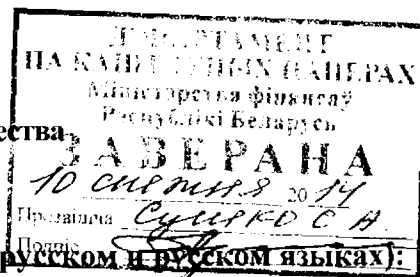 ДЭПАРТАМЕНТ
ПА КАШТОЎНЫХ ПАПЕРАХ
Міністэрства фінансаў
Рэспублікі Беларусь
ества
ЗАВЕРАНА
10 снежня 2014
Прозвішча Суляко С А
Подпіс
русском и русском языках):